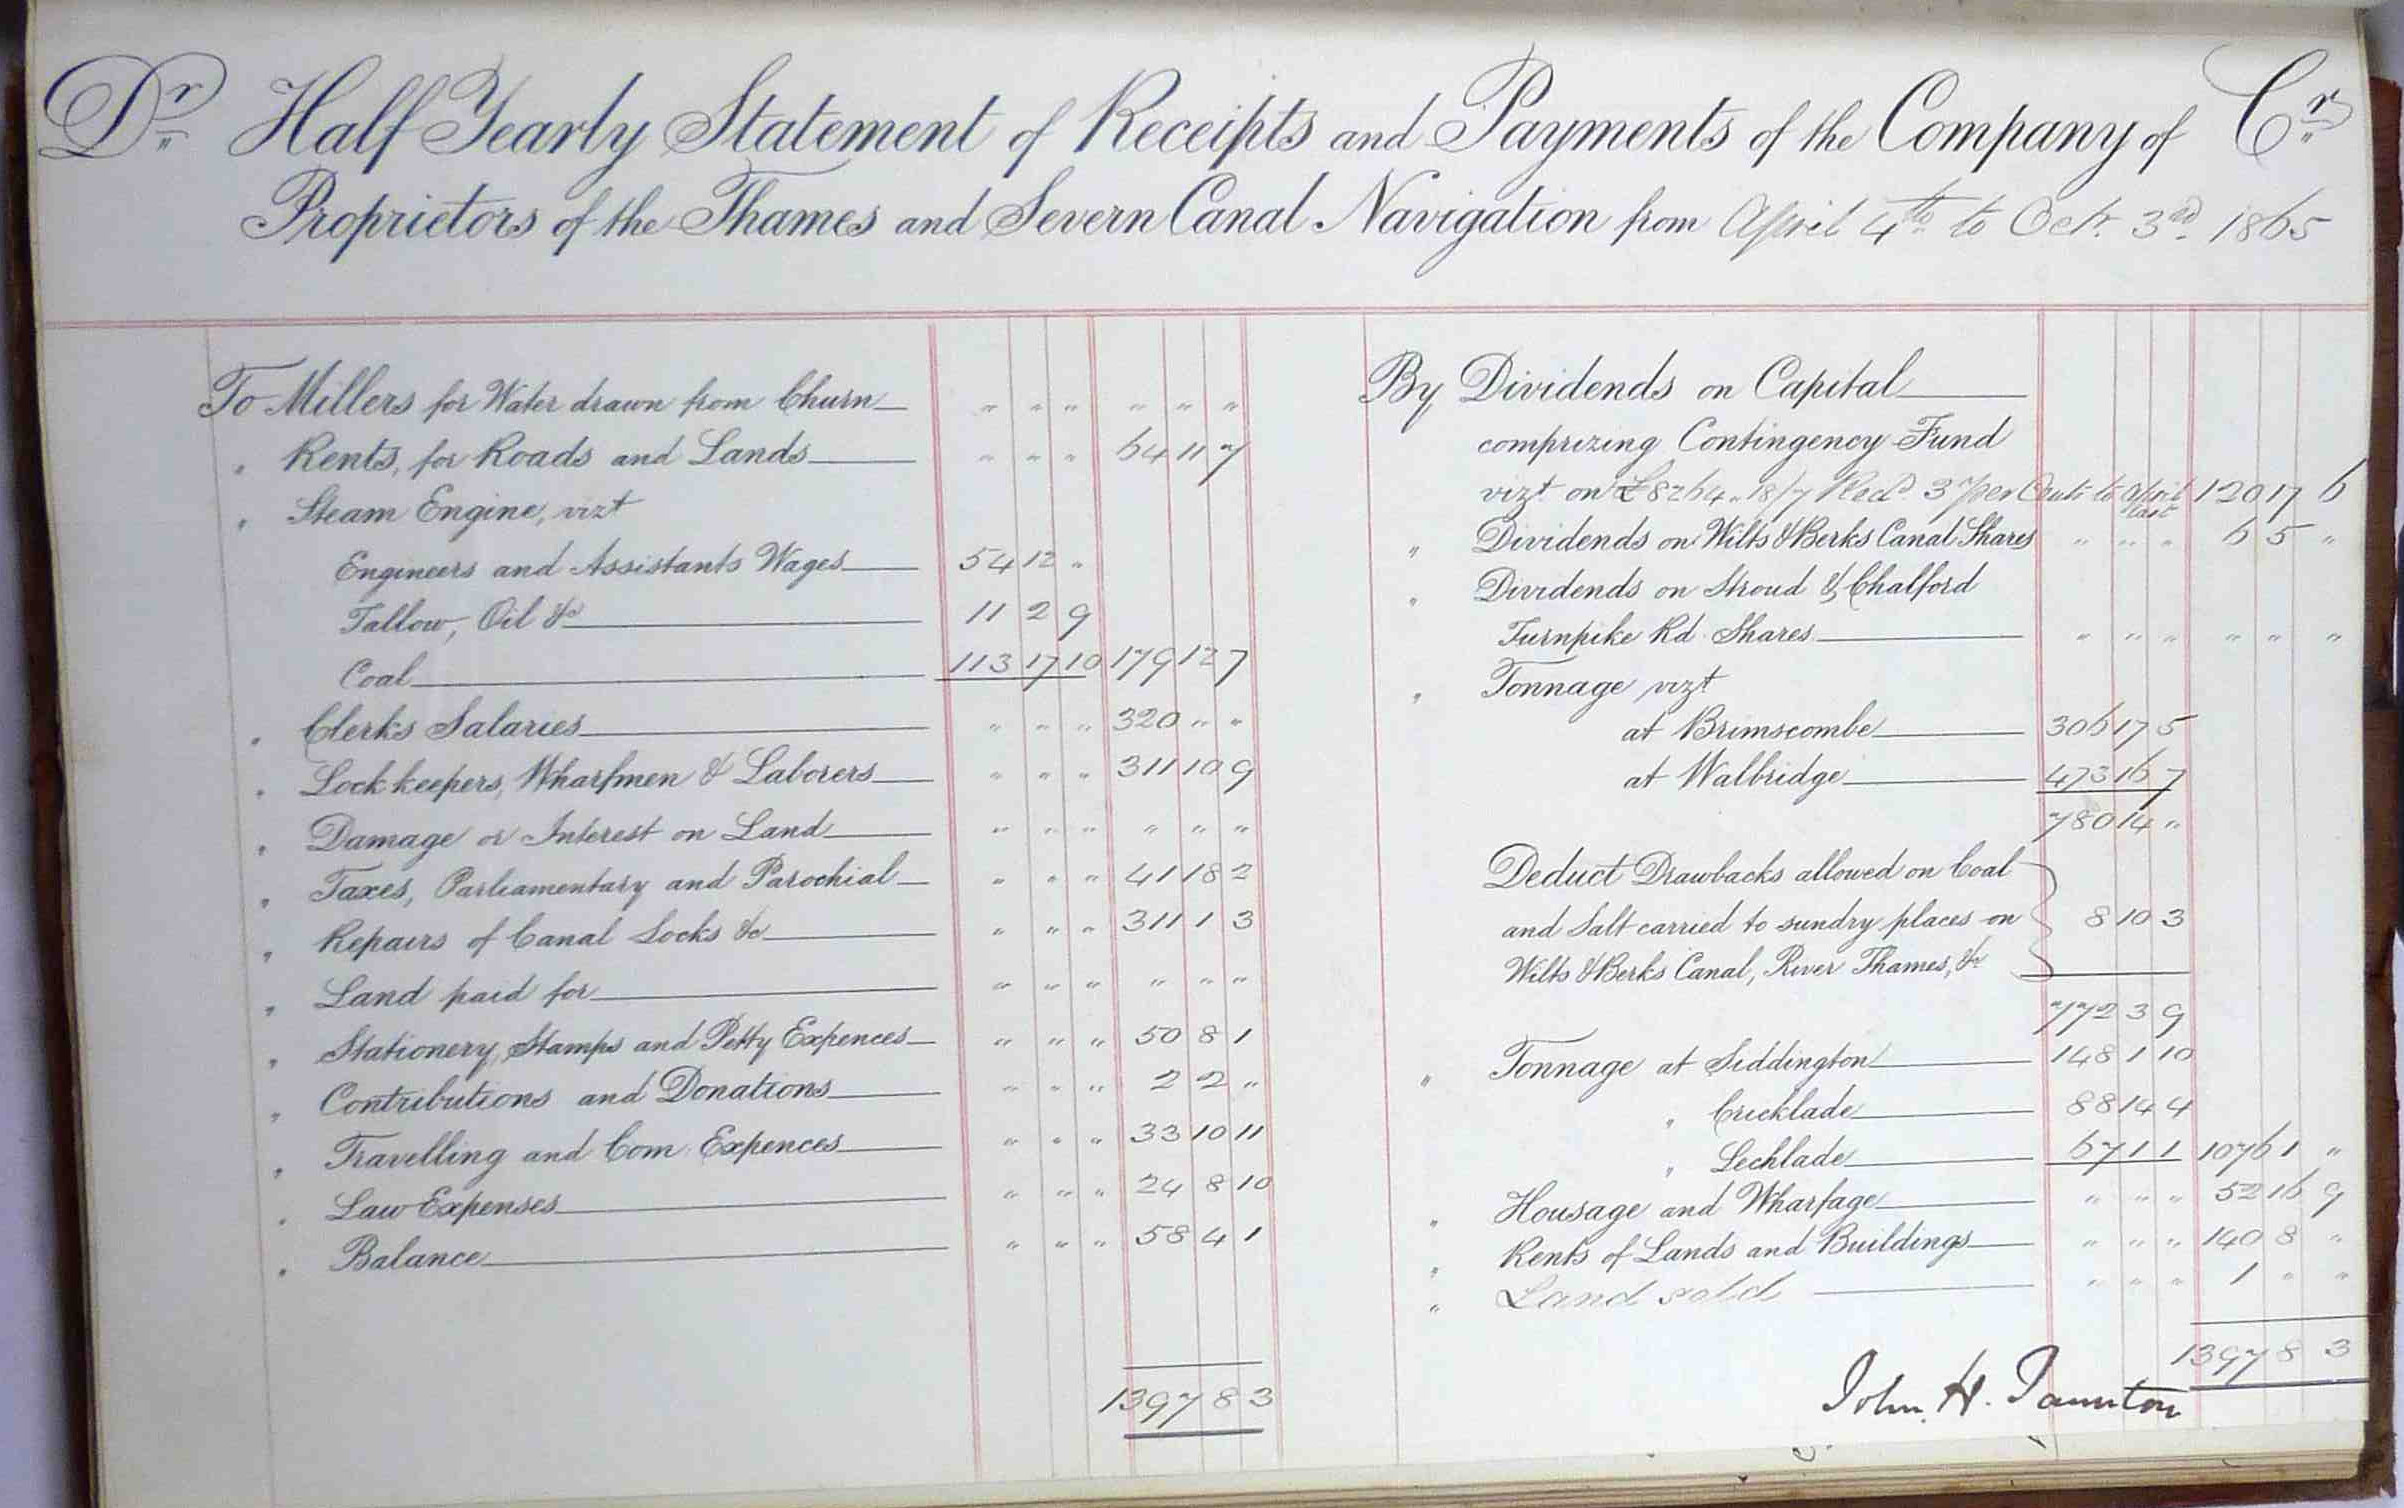 Dr Half Yearly Statement of Receipts and Payments of the Company of Cr
Proprietors of the Thames and Severn Canal Navigation from April 4th to Octr. 3rd. 1865
To Millers for Water drawn from Churn " " " " " "
" Rents, for Roads and Lands " " " 64 11 7
" Steam Engine, vizt
Engineers and Assistants Wages 54 12 "
Tallow, Oil &c 11 2 9
Coal 113 17 10 179 12 7
" Clerks Salaries " " " 320 " "
" Lock keepers, Wharfmen & Laborers " " " 311 10 9
" Damage or Interest on Land " " " " " "
" Taxes, Parliamentary and Parochial " " " 41 18 2
" Repairs of Canal Locks &c " " " 311 1 3
" Land paid for " " " " " "
" Stationery, Stamps and Petty Expences " " " 50 8 1
" Contributions and Donations " " " 2 2 "
" Travelling and Com. Expences " " " 33 10 11
" Law Expenses " " " 24 8 10
" Balance " " " 58 4 1
1397 8 3
By Dividends on Capital
comprizing Contingency Fund
vizt on £8264. 18/7 Red. 3 per Cents to April last 120 17 6
" Dividends on Wilts & Berks Canal Shares " " " 6 5 "
" Dividends on Stroud & Chalford
Turnpike Rd. Shares " " " " " "
" Tonnage vizt
at Brimscombe 306 17 5
at Walbridge 473 16 7
780 14 "
Deduct Drawbacks allowed on Coal
and Salt carried to sundry places on 8 10 3
Wilts & Berks Canal, River Thames, &c
772 3 9
" Tonnage at Siddington 148 1 10
" Cricklade 88 14 4
" Lechlade 67 1 1 1076 1 "
" Housage and Wharfage " " " 52 16 9
" Rents of Lands and Buildings " " " 140 8 "
" Land sold " " " 1 " "
1397 8 3
John. H. Taunton